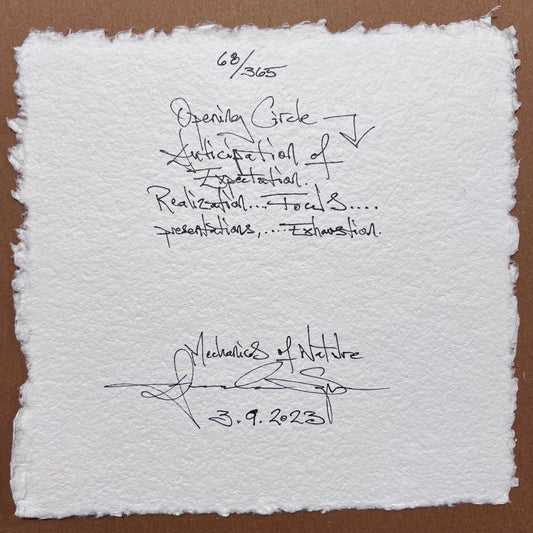 68/365
Opening Circle
Anticipation of
Expectation.
Realization... Focus....
presentations,.... Exhaustion.
Mechanics of Nature
3.9.2023